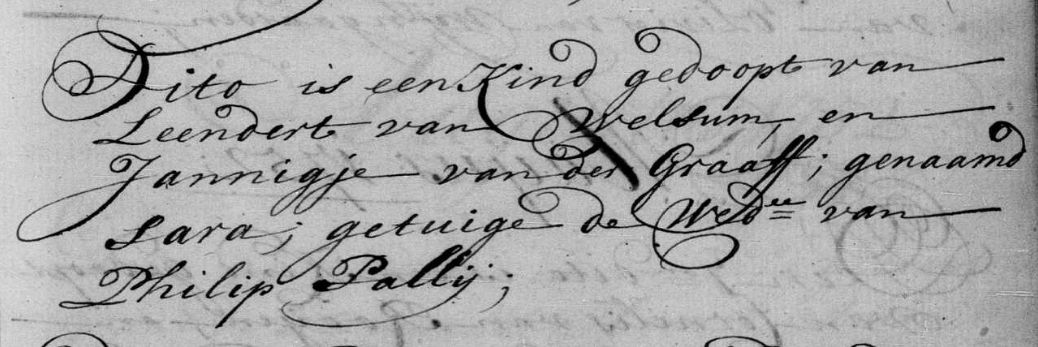 Dito is een Kind gedoopt van
Leendert van Welsum, en
Jannigje van der Graaff; genaamd
sara; getuige de Wed.ue van
Philip Pallij;